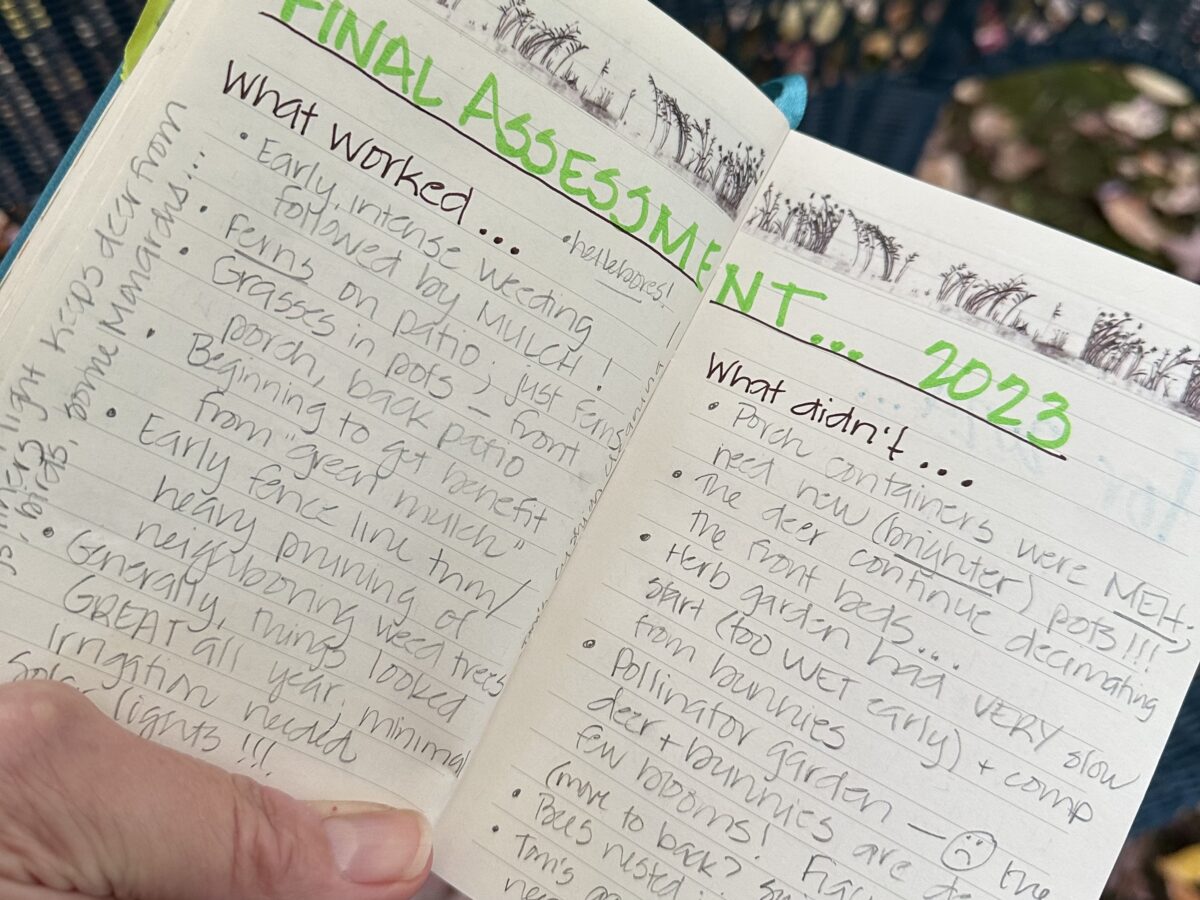 FINAL ASSESSMENT... 2023
What worked...
• Early, intense weeding
followed by MULCH!
• hellebores!
• Ferns on patio; just ferns
• Grasses in pots → front
porch, back patio
• Beginning to get benefit
from "great mulch"
• Early fence line trim/
heavy pruning of
neighboring weed trees
• Generally, things looked
GREAT all year, minimal
irrigation needed
Solar lights!!!
light keeps deer from
birds, some Monardas...
What didn't...
• Porch containers were MEH;
need new (brighter) pots!!!
• The deer continue decimating
the front beds...
• Herb garden had VERY slow
start (too WET early) + comp
from bunnies
• Pollinator garden — the
deer + bunnies are
few blooms!
(move to back?
• Bees nested..
• Tom's